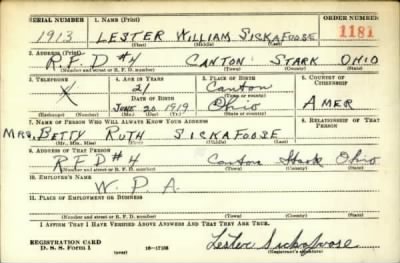 SERIAL NUMBER 1. NAME (Print) ORDER NUMBER
1913 LESTER WILLIAM SICKAFOOSE 1181
(First) (Middle) (Last)
2. ADDRESS (Print)
R.F.D #4 CANTON STARK OHIO
(Number and street or R. F. D. number) (Town) (County) (State)
3. TELEPHONE 4. AGE IN YEARS 5. PLACE OF BIRTH 6. COUNTRY OF CITIZENSHIP
X 21 Canton
DATE OF BIRTH (Town or county)
JUNE 20 1919 Ohio AMER
(Exchange) (Number) (Mo.) (Day) (Yr.) (State or country)
7. NAME OF PERSON WHO WILL ALWAYS KNOW YOUR ADDRESS 8. RELATIONSHIP OF THAT PERSON
MRS. BETTY RUTH SICKAFOOSE
(Mr., Mrs., Miss) (First) (Middle) (Last)
9. ADDRESS OF THAT PERSON
R F D #4 Canton Stark Ohio
(Number and street or R. F. D. number) (Town) (County) (State)
10. EMPLOYER'S NAME
W. P. A.
11. PLACE OF EMPLOYMENT OR BUSINESS
(Number and street or R. F. D. number) (Town) (County) (State)
I AFFIRM THAT I HAVE VERIFIED ABOVE ANSWERS AND THAT THEY ARE TRUE.
REGISTRATION CARD
D. S. S. Form 1 (over) 16-17105 Lester Sickafoose
(Registrant's signature)